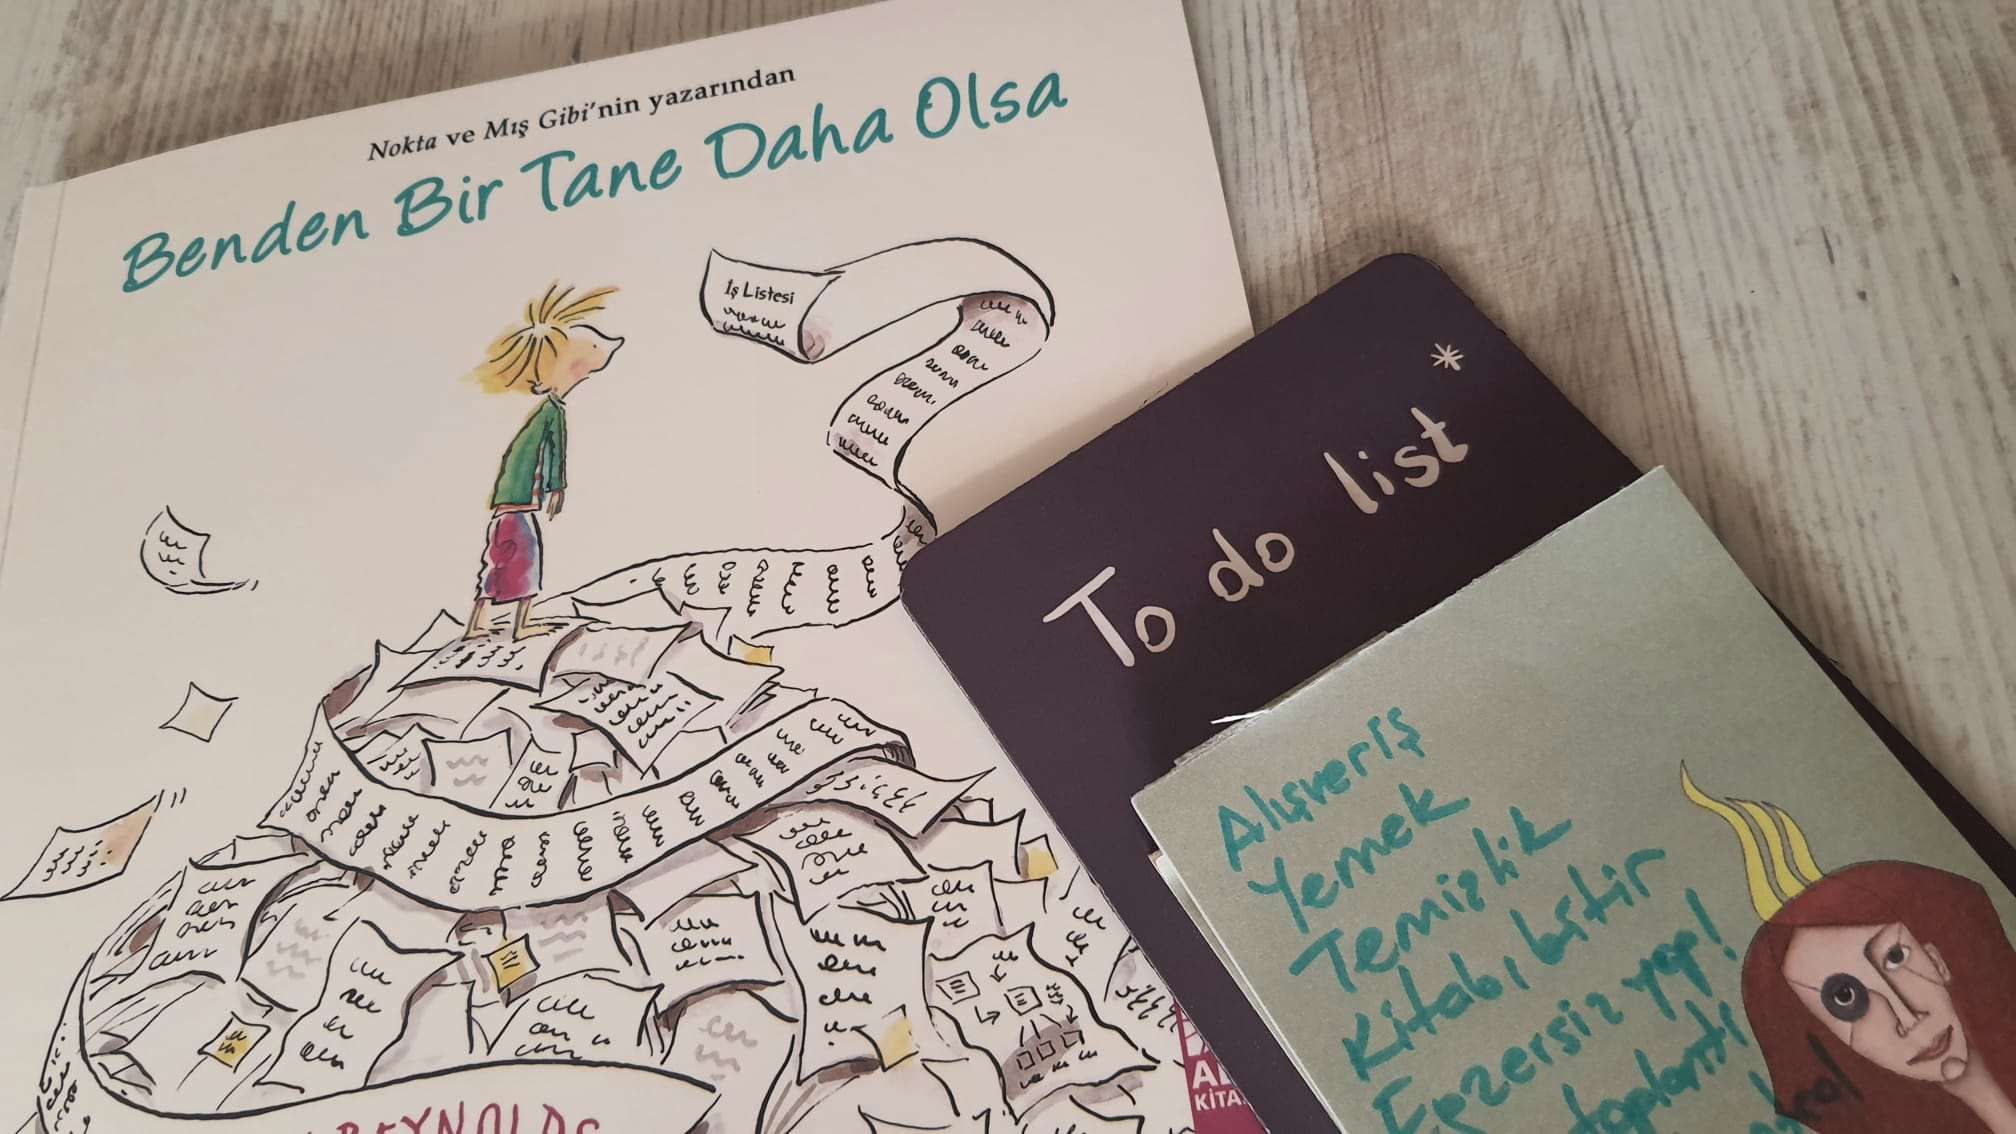 Nokta ve Mış Gibi'nin yazarından
Benden Bir Tane Daha Olsa
İş Listesi
REYNOLDS
KİTA
To do list *
Alışveriş
Yemek
Temizlik
Kitabı bitir
Egzersiz yap!
toplantı